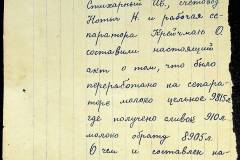 Стихарный ИВ, счетовод
Котыч Н. и рабочая се-
паратора Крейчмаю О.
составили настоящий
акт о том, что было
переработано на сепара-
торе молоко цельное 9815л
где получено сливок 910л
молоко обрату 8905л
О чем и составлен на-